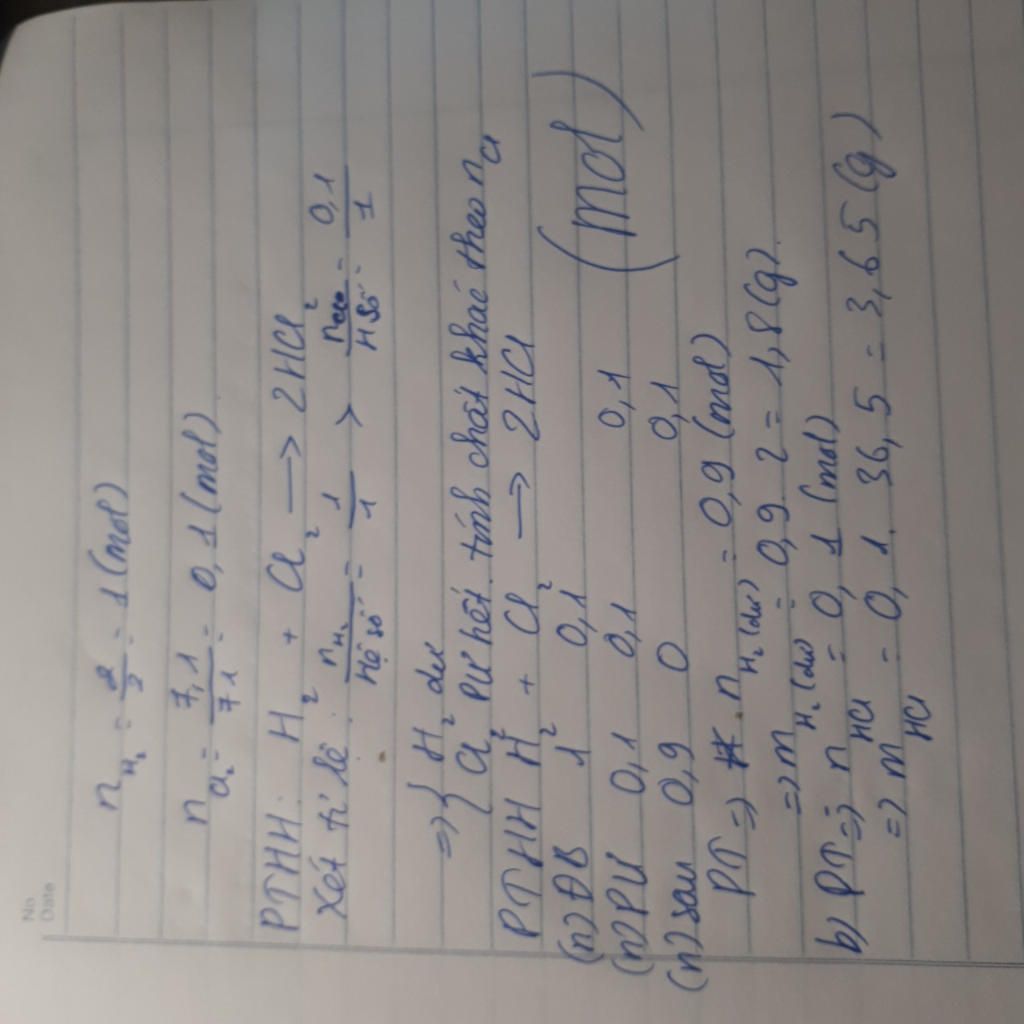 No
Date
n H₂ = 2/2 = 1 (mol)
n Cl₂ = 7,1/71 = 0,1 (mol)
PTHH: H₂ + Cl₂ → 2HCl
Xét tỉ lệ: n H₂/Hệ số = 1/1 > n Cl₂/H Số = 0,1/1
=> { H₂ dư
Cl₂ PƯ hết. tính chất khác theo n Cl₂
PTHH H₂ + Cl₂ → 2HCl
(n) ĐB 1 0,1
(n) PƯ 0,1 0,1 0,1 (mol)
(n) sau 0,9 0 0,1
PT => n H₂ (dư) = 0,9 (mol)
=> m H₂ (dư) = 0,9 . 2 = 1,8 (g).
b) PT => n HCl = 0,1 (mol)
=> m HCl = 0,1 . 36,5 = 3,65 (g)